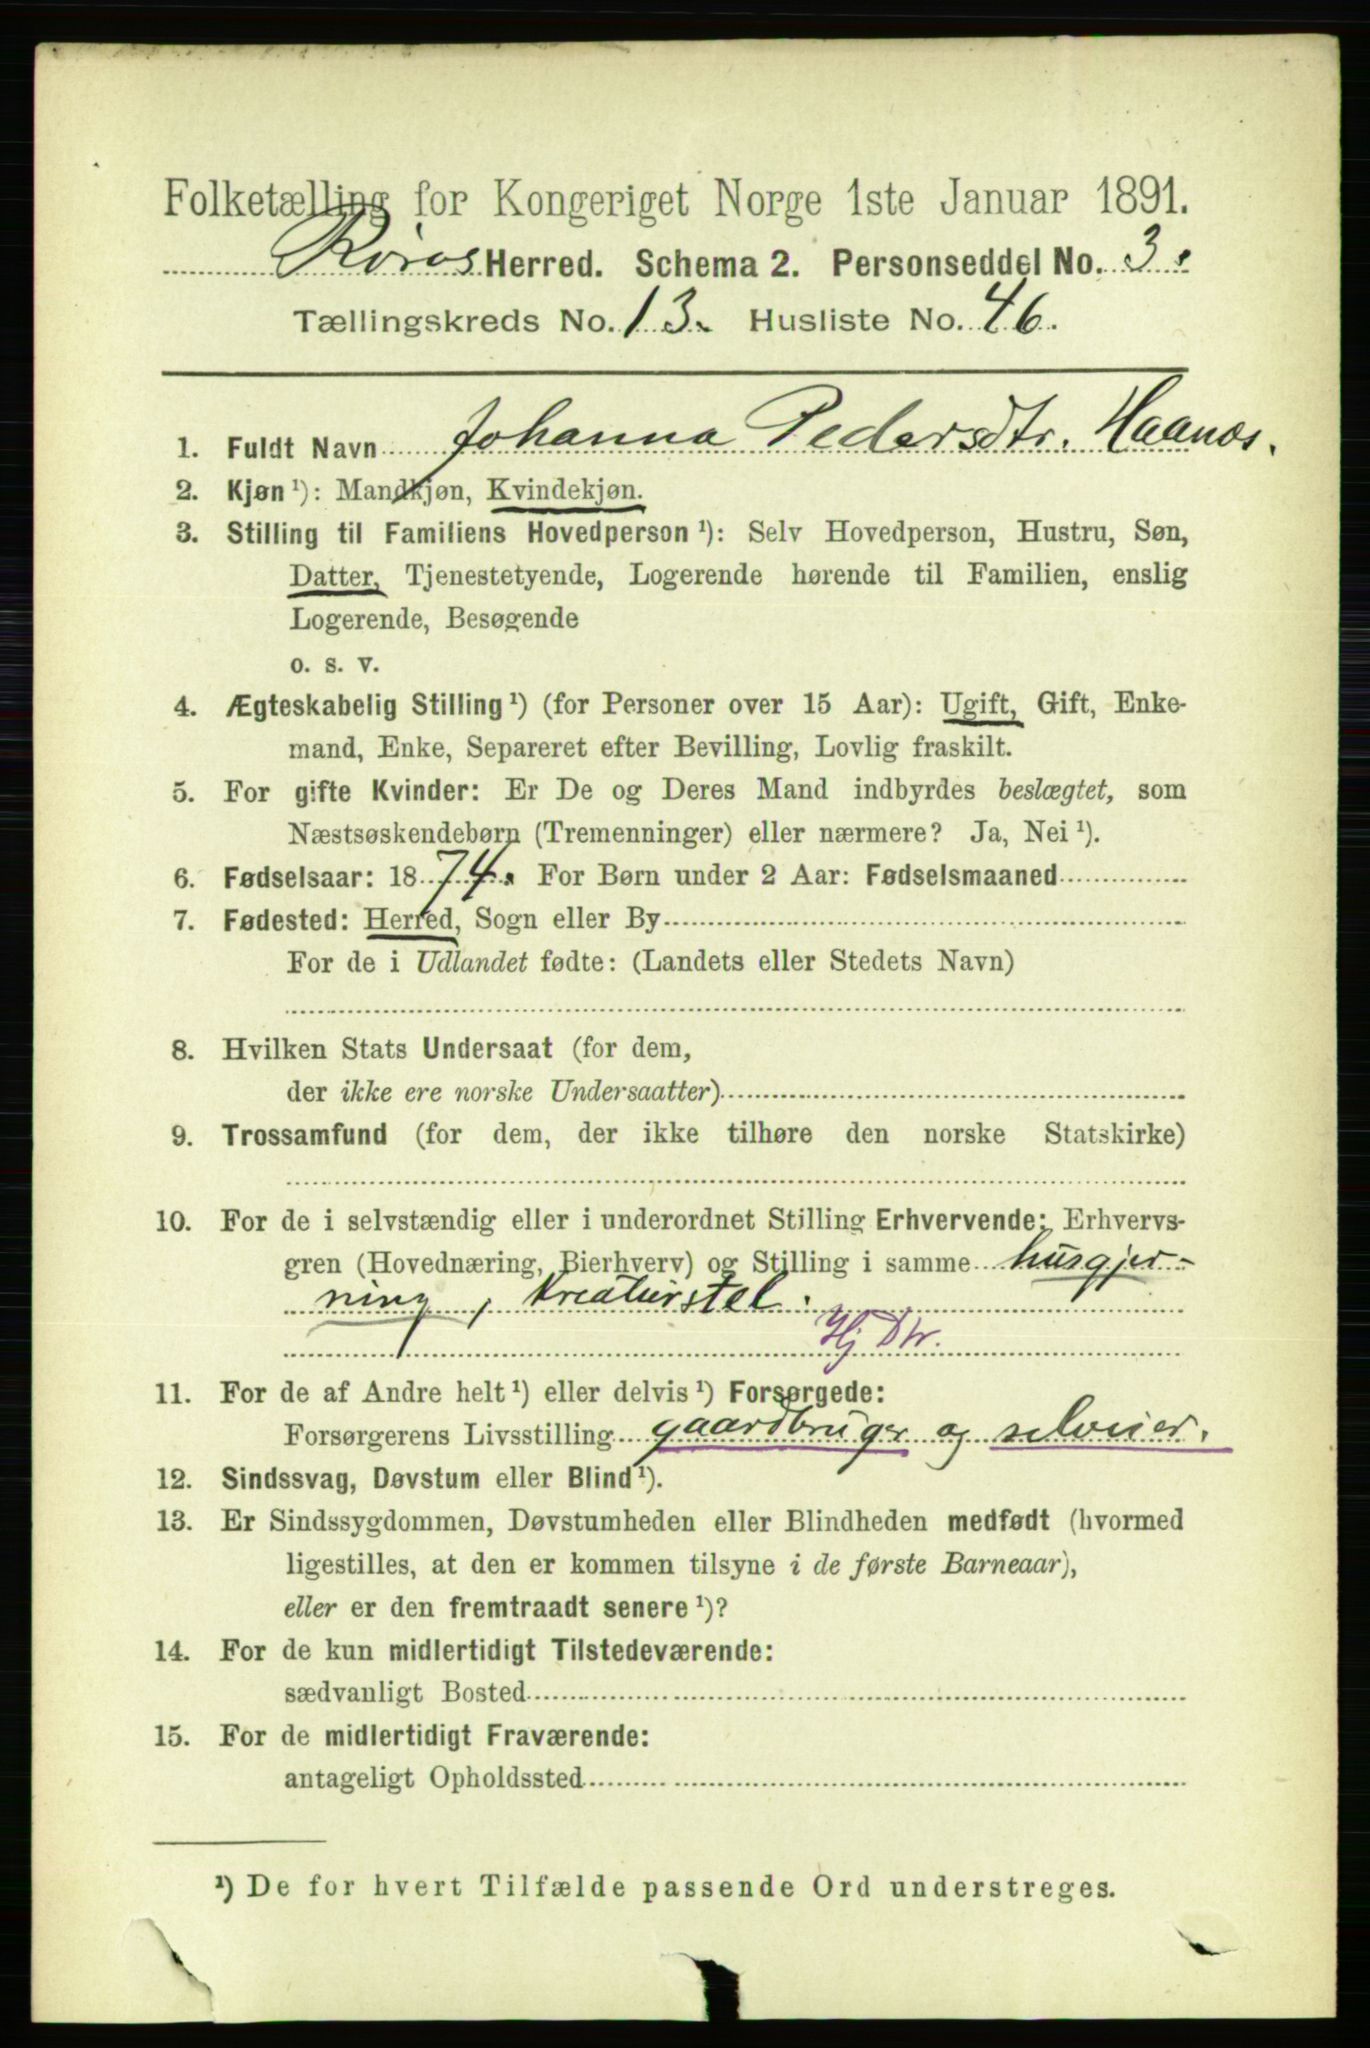 Folketælling for Kongeriget Norge 1ste Januar 1891.
Røros Herred. Schema 2. Personseddel No. 3.
Tællingskreds No. 13. Husliste No. 46.
1. Fuldt Navn Johanna Pedersdtr. Haanæs.
2. Kjøn ¹): Mandkjøn, Kvindekjøn.
3. Stilling til Familiens Hovedperson ¹): Selv Hovedperson, Hustru, Søn,
Datter, Tjenestetyende, Logerende hørende til Familien, enslig
Logerende, Besøgende
o. s. v.
4. Ægteskabelig Stilling ¹) (for Personer over 15 Aar): Ugift, Gift, Enke-
mand, Enke, Separeret efter Bevilling, Lovlig fraskilt.
5. For gifte Kvinder: Er De og Deres Mand indbyrdes beslægtet, som
Næstsøskendebørn (Tremenninger) eller nærmere? Ja, Nei ¹).
6. Fødselsaar: 1874. For Børn under 2 Aar: Fødselsmaaned
7. Fødested: Herred, Sogn eller By
For de i Udlandet fødte: (Landets eller Stedets Navn)
8. Hvilken Stats Undersaat (for dem,
der ikke ere norske Undersaatter)
9. Trossamfund (for dem, der ikke tilhøre den norske Statskirke)
10. For de i selvstændig eller i underordnet Stilling Erhvervende: Erhvervs-
gren (Hovednæring, Bierhverv) og Stilling i samme husgjer-
ning, kreaturstel.
Hj Dtr.
11. For de af Andre helt ¹) eller delvis ¹) Forsørgede:
Forsørgerens Livsstilling gaardbruger og selveier.
12. Sindssvag, Døvstum eller Blind ¹).
13. Er Sindssygdommen, Døvstumheden eller Blindheden medfødt (hvormed
ligestilles, at den er kommen tilsyne i de første Barneaar),
eller er den fremtraadt senere ¹)?
14. For de kun midlertidigt Tilstedeværende:
sædvanligt Bosted
15. For de midlertidigt Fraværende:
antageligt Opholdssted
¹) De for hvert Tilfælde passende Ord understreges.